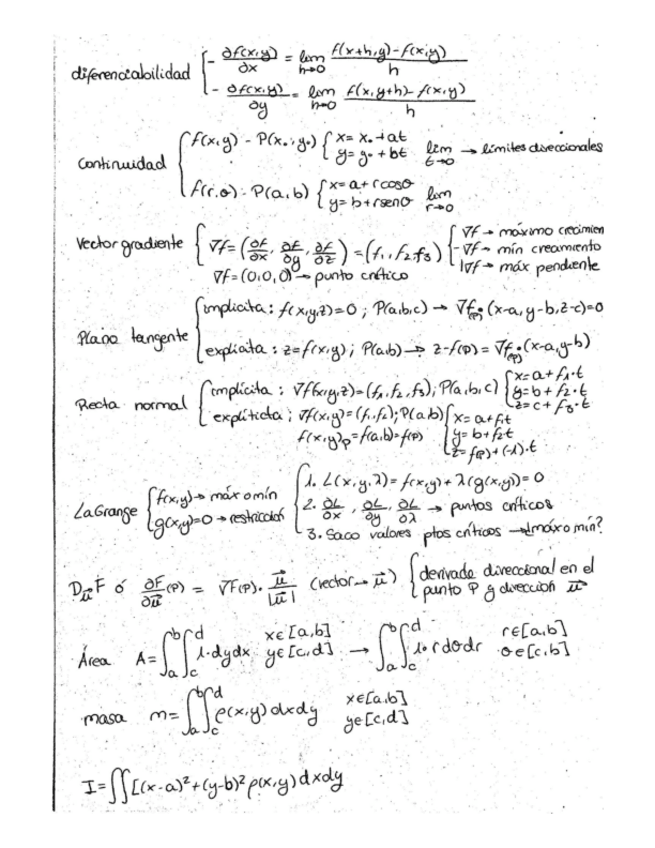 diferenciabilidad { - ∂f(x,y)/∂x = lim h→0 f(x+h,y)-f(x,y)/h
- ∂f(x,y)/∂y = lim h→0 f(x,y+h)-f(x,y)/h
Continuidad { f(x,y) - P(x₀,y₀) { x= x₀+at
y= y₀+bt lim t→0 → límites direccionales
f(r,θ) - P(a,b) { x=a+rcosθ
y=b+rsenθ lim r→0
Vector gradiente { ∇f=(∂f/∂x, ∂f/∂y, ∂f/∂z)=(f₁,f₂,f₃) { ∇f→ máximo crecimien
-∇f→ mín crecimiento
|∇f→ máx pendiente
∇f=(0,0,0)→ punto crítico
Plano tangente { implícita: f(x,y,z)=0 ; P(a,b,c) → ∇f(P)·(x-a,y-b,z-c)=0
explícita : z=f(x,y) ; P(a,b) → z-f(P) = ∇f(P)·(x-a,y-b)
Recta normal { implícita : ∇f(x,y,z)=(f₁,f₂,f₃); P(a,b,c) { x=a+f₁·t
y=b+f₂·t
z=c+f₃·t
explíticta ; ∇f(x,y)=(f₁,f₂); P(a,b) { x=a+f₁t
f(x,y)p=f(a,b)=f(P) y=b+f₂t
z=f(P)+(-1)·t
LaGrange { f(x,y)→ máx o mín
g(x,y)=0→ restricción
{ 1. L(x,y,λ)= f(x,y)+λ(g(x,y))=0
2. ∂L/∂x , ∂L/∂y , ∂L/∂λ → puntos críticos
3. Saco valores ptos críticos → ¿máx o mín?
D_u⃗ F ó ∂F/∂u⃗ (P) = ∇F(P)· u⃗/|u⃗| (vector→ u⃗) { derivada direccional en el
punto P y dirección u⃗
Área A=∫ₐᵇ∫_c^d 1·dydx x∈[a,b]
y∈[c,d] → ∫ₐᵇ∫_c^d 1·r dθdr r∈[a,b]
θ∈[c,b]
masa m=∫ₐᵇ∫_c^d ρ(x,y) dxdy x∈[a,b]
y∈[c,d]
I=∫∫[(x-a)²+(y-b)² ρ(x,y) dxdy